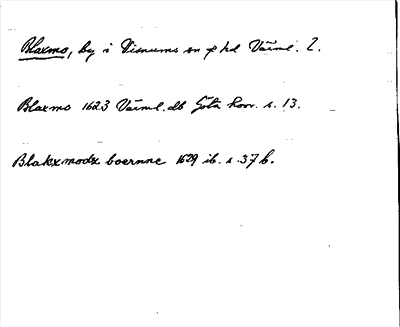 Blaxmo, by i Visnums sn o hd Värml. l.
Blaxmo 1623 Värml. db Göta hovr. s. 13.
Blakxmodz boernne 1629 ib. s. 37 b.